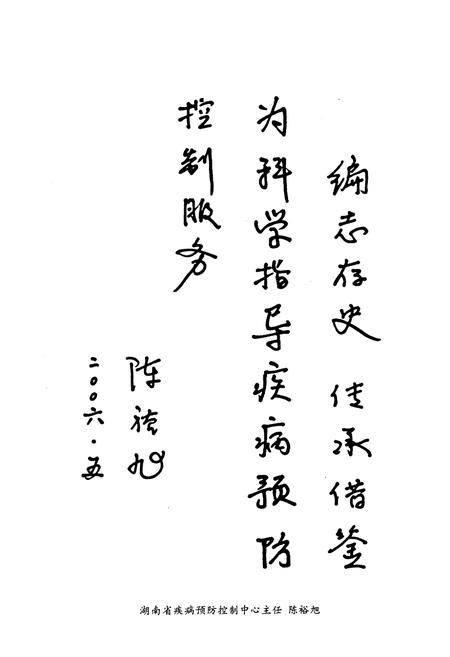 编志存史 传承借鉴
为科学指导疾病预防
控制服务
陈裕旭
二〇〇六·五
湖南省疾病预防控制中心主任 陈裕旭